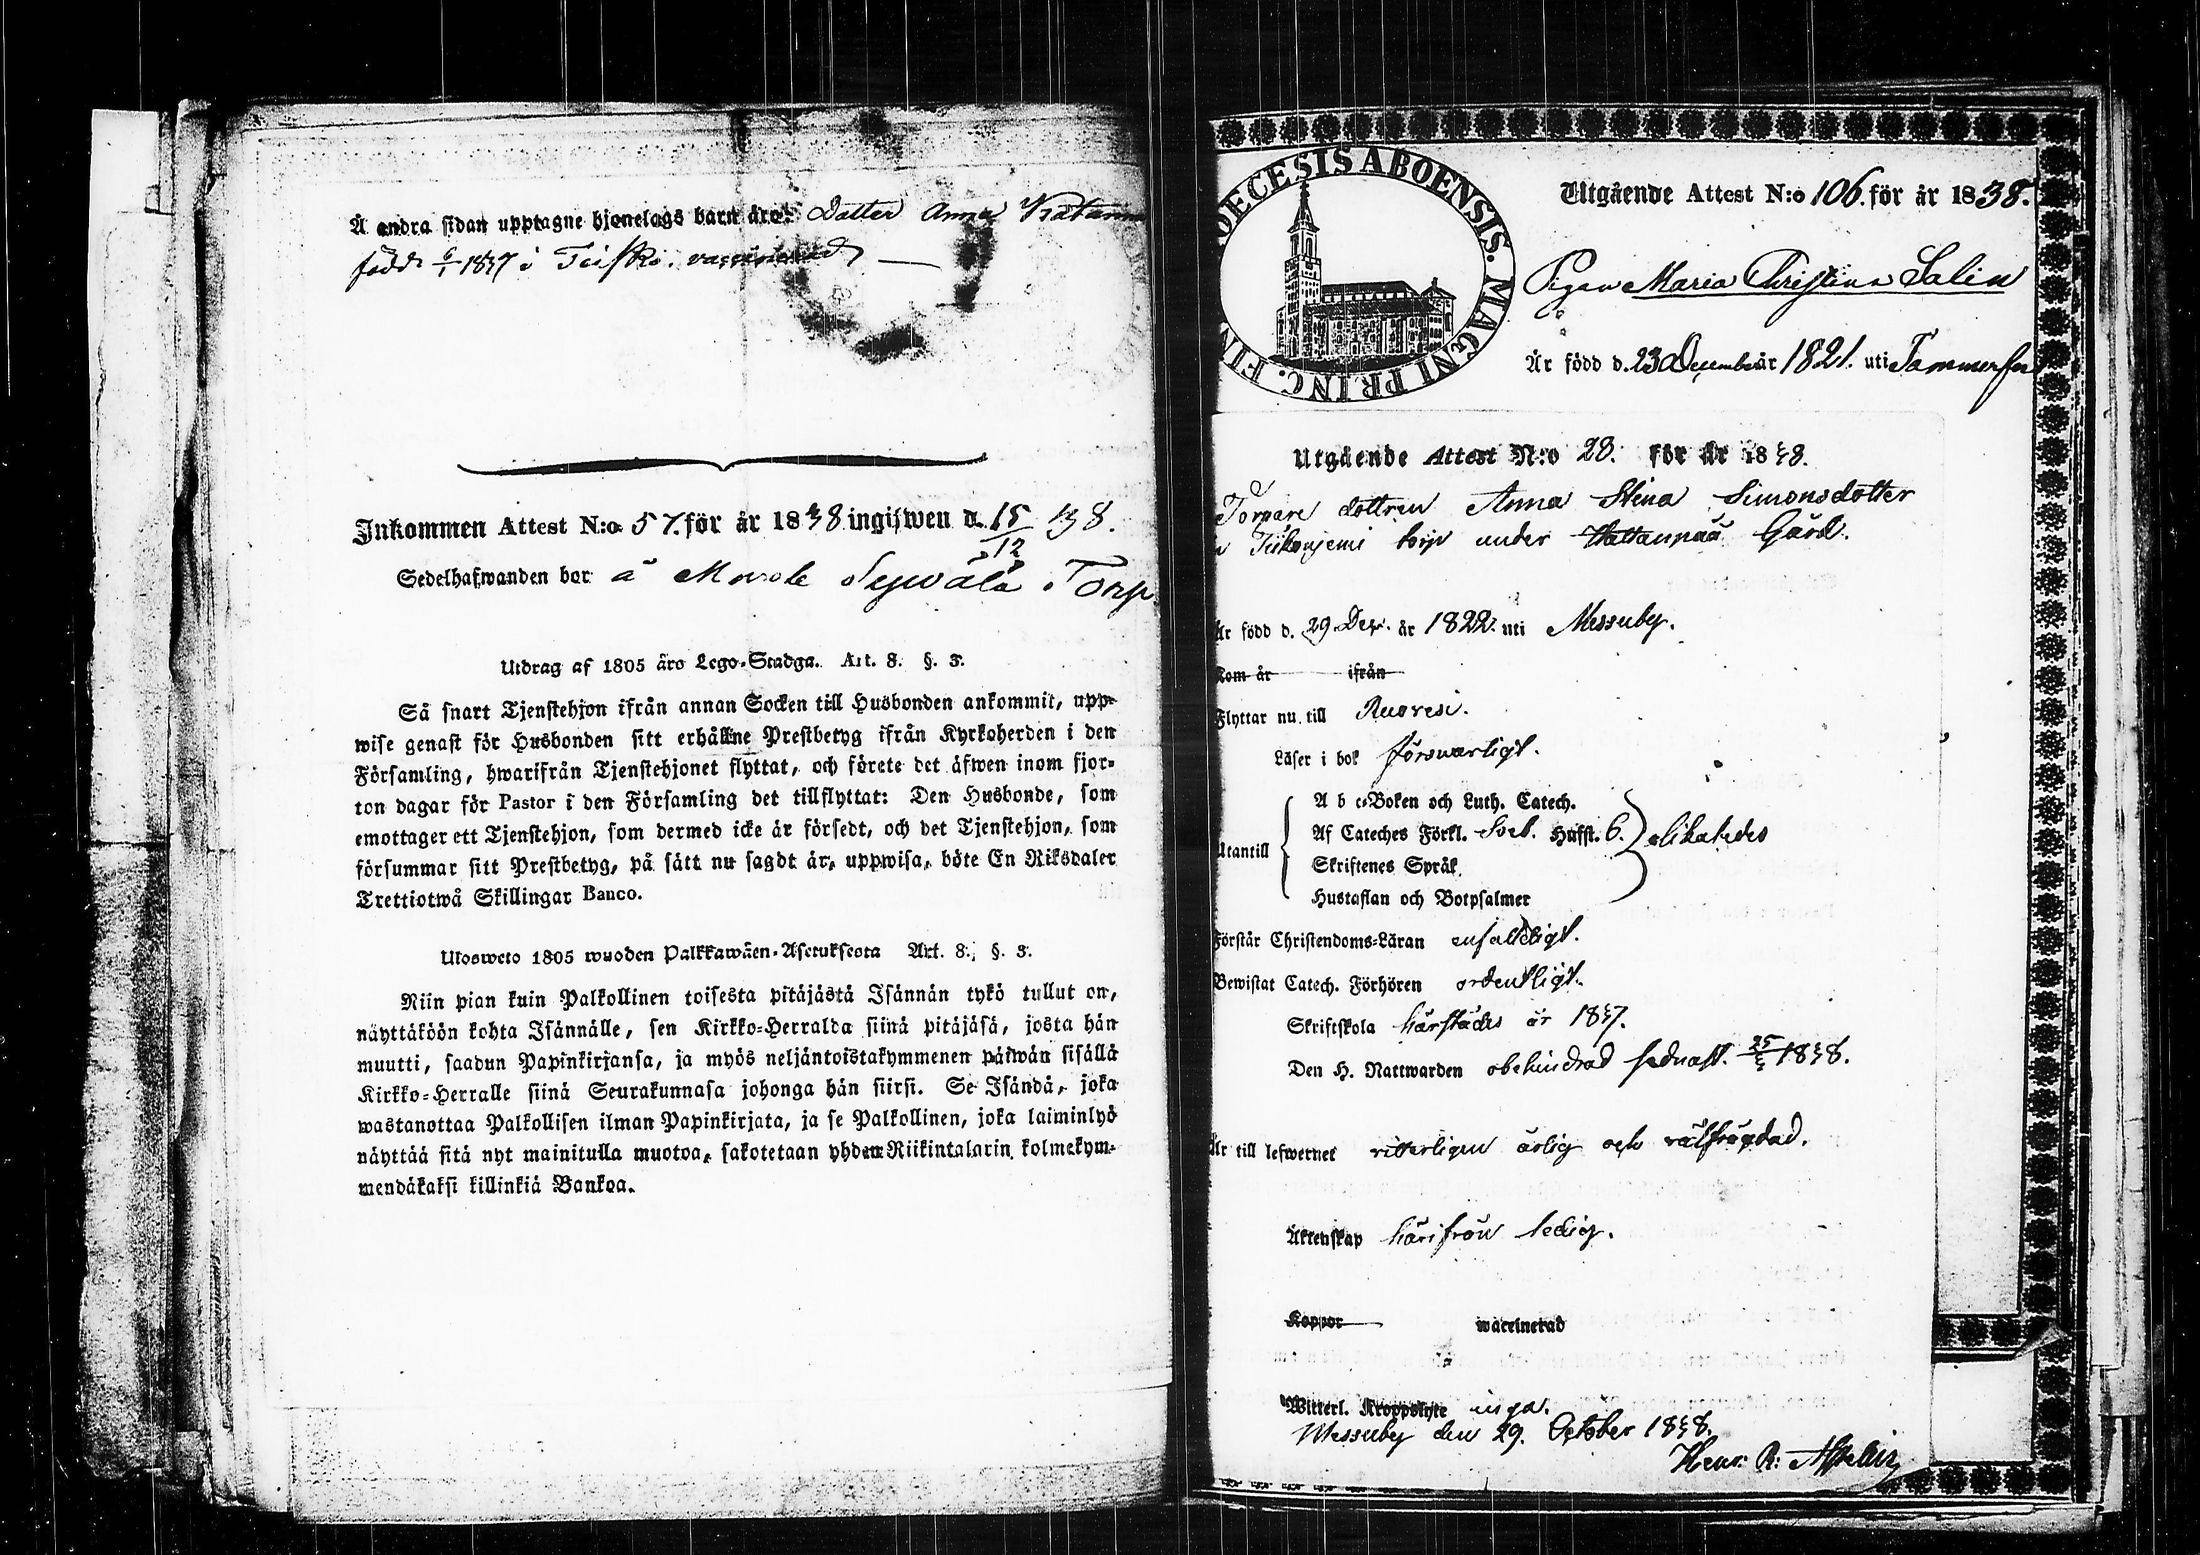 Å andra sidan upptagne hjonelags barn äro: Dotter Anna
född 6/1 1837 i Teisko. vaccinerad, —
Inkommen Attest N:o 57. för år 1838 ingifwen d. 15/12 138.
Sedelhafwanden bor å Torp
Utdrag af 1805 års Lego-Stadga. Art. 8. §. 3.
Så snart Tjenstehjon ifrån annan Socken till Husbonden ankommit, upp-
wise genast för Husbonden sitt erhållne Prestbetyg ifrån Kyrkoherden i den
Församling, hwarifrån Tjenstehjonet flyttat, och förete det äfwen inom fjor-
ton dagar för Pastor i den Församling det tillflyttat: Den Husbonde, som
emottager ett Tjenstehjon, som dermed icke är försedt, och det Tjenstehjon, som
försummar sitt Prestbetyg, på sätt nu sagdt är, uppwisa, böte En Riksdaler
Trettiotwå Skillingar Banco.
Ulosweto 1805 wuoden Palkkawäen-Asetuksesta Art. 8. §. 3.
Niin pian kuin Palkollinen toisesta pitäjästä Isännän tykö tullut on,
näyttäköön kohta Isännälle, sen Kirkko-Herralda siinä pitäjäsä, josta hän
muutti, saadun Papinkirjansa, ja myös neljäntoistakymmenen päiwän sisällä
Kirkko-Herralle siinä Seurakunnasa johonga hän siirsi. Se Isändä, joka
wastanottaa Palkollisen ilman Papinkirjata, ja se Palkollinen, joka laiminlyö
näyttää sitä nyt mainitulla muotoa, sakotetaan yhden Riikintalarin kolmekym-
mendäkaksi killinkiä Bankoa.
DECESIS ABOENSIS. MAGNI PRINC. FIN
Utgående Attest N:o 106. för år 1838.
Pigan Maria Christina Salin
Är född d. 23 December år 1821. uti Tammerfors
Utgående Attest N:o 28. för År 1838.
Torpare dottren Anna Stina Simonsdotter
torp under Hattanpää Gård.
Är född d. 29 Dec. år 1822. uti Messuby.
Kom år ifrån
Flyttar nu till Ruovesi.
Läser i bok försvarligt.
Utantill
A b c-Boken och Luth. Catech.
Af Cateches Förkl. Sveb. Hufst. 6.
Skriftenes Språk
Hustaflan och Botpsalmer
Förstår Christendoms-Läran enfaldeligt.
Bewistat Catech. Förhören ordentligt.
Skriftskola härstädes år 1837.
Den H. Nattwarden obehindrad sednast. 25/3 1838.
Är till lefwernet witterligen ärlig och välfrägdad.
Äktenskap härifrån ledig.
Koppor waccinerad
Witterl. Kroppslyte inga.
Messuby den 29. October 1838.
Henr: R: